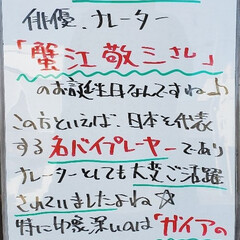 俳優、ナレーター
「蟹江敬三さん」
のお誕生日なんですね♪
この方といえば、日本を代表
する名バイプレーヤーであり
ナレーターとしても大変ご活躍
されていましたよね☆
特に印象深いのは「ガイアの